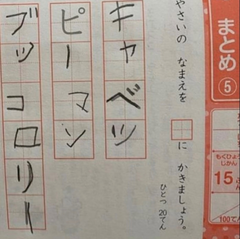 まとめ
5
やさいの なまえを □に かきましょう。
ひとつ 20てん
もくひょう
じかん
15
100てん
キャベツ
ピーマン
ブッコロリー